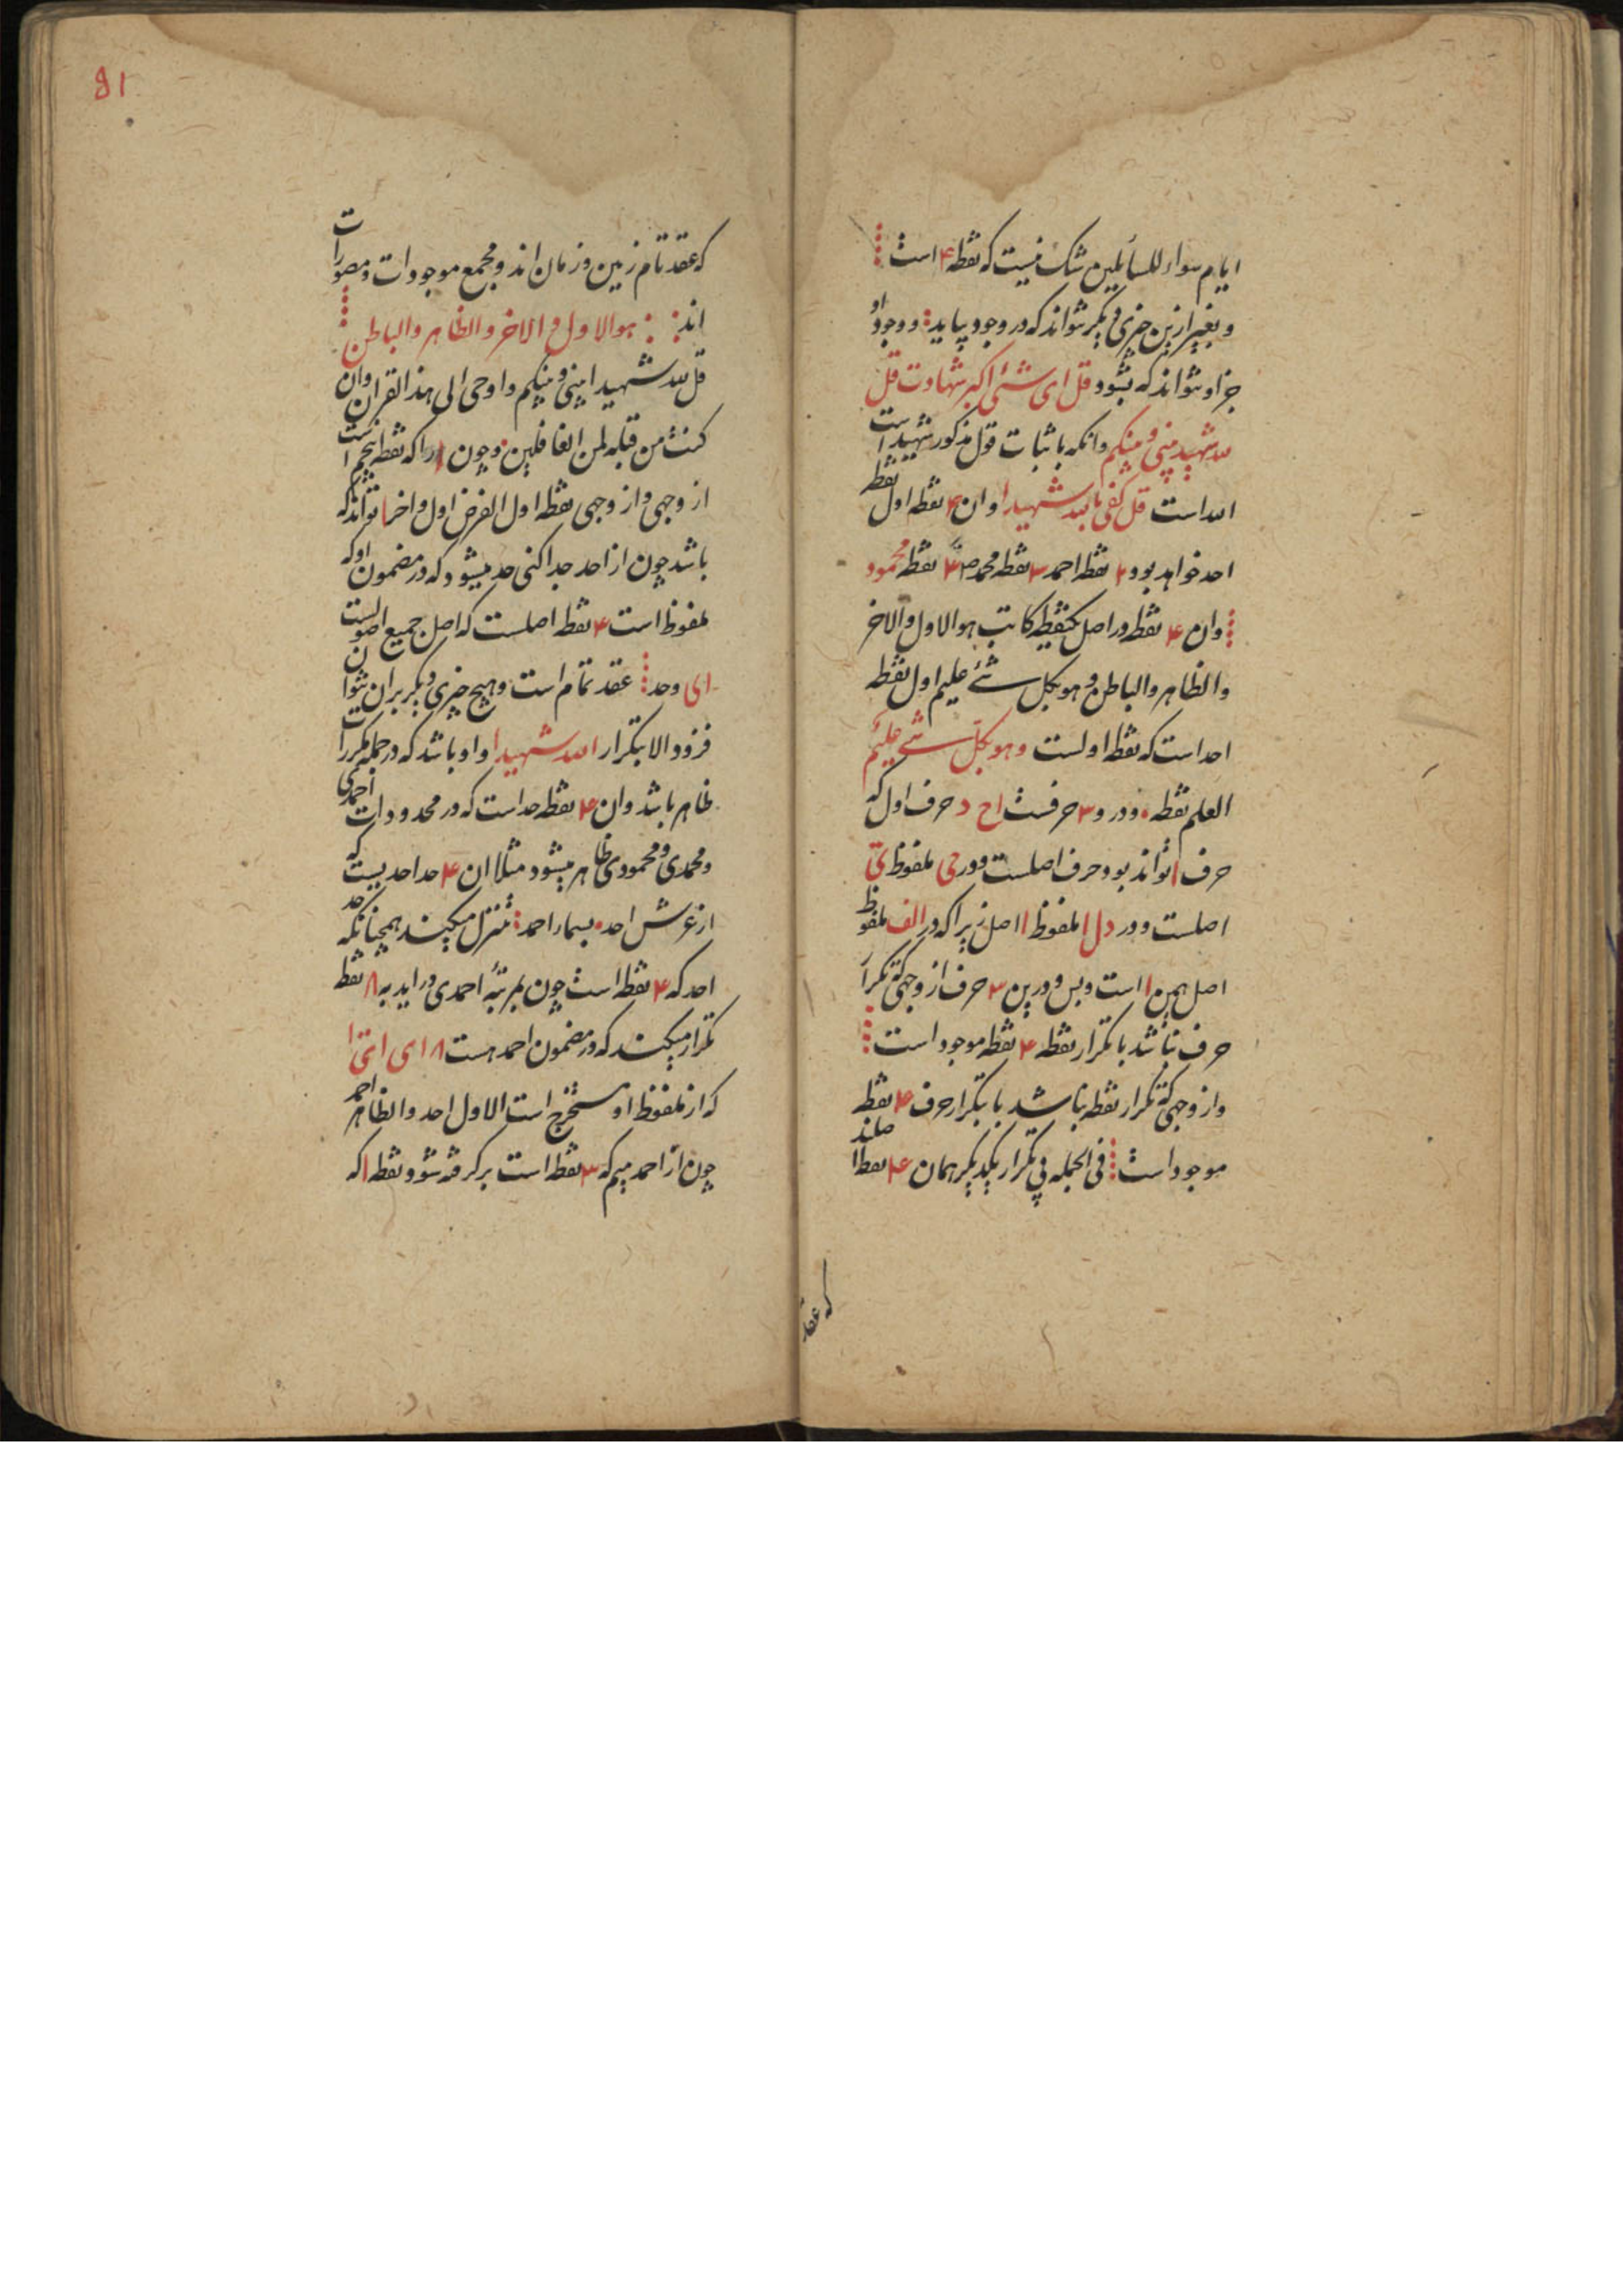 ایام سواء للسائلین شک نیست که نقطه ۴ است
و بغیر ازین چیزی دیگر نتواند که در وجود بیاید و وجود او
جز او نتواند که بشود قل ای شئ اکبر شهادت قل
الله شهید بینی و بینکم و انکه باثبات قول مذکور شهید است
الله است قل کفی بالله شهیدا و ان ۴ نقطه اول نقطه
احد خواهد بود ۲ نقطه احمد ۳ نقطه محمد ۴ نقطه محمود
و ان ۴ نقطه در اصل یکنقطه کاتب هو الاول و الاخر
و الظاهر و الباطن و هو بکل شئ علیم اول نقطه
احد است که نقطه اولست و هو بکل شئ علیم
العلم نقطه و در و ۳ حرفست ا ح د حرف اول که
حرف ا تواند بود حرف اصلست و در حی ملفوظ ی
اصلست و در دل ا ملفوظ ا اصل زیرا که در الف ملفوظ
اصل همین ا است و بس و درین ۳ حرف از وجهی که تکرار
حرف نباشد با تکرار نقطه ۴ نقطه موجود است
و از وجهی که تکرار نقطه نباشد با تکرار حرف ۴ نقطه
موجود است فی الجمله بی تکرار یکدیگر همان ۴ نقطه
که عقد
81
که عقد تمام زمین و زمان اند و مجمع موجودات و مصورات
اند هو الاول و الاخر و الظاهر و الباطن
قل الله شهیدا بینی و بینکم و اوحی الی هذا القران و ان
کنت من قبله لمن الغافلین و چون ا را که نقطه پنجم است
از وجهی و از وجهی نقطه اول الفرض اول و اخر ا تواند که
باشد چون از احد جدا کنی حد میشود که در مضمون او که
ملفوظ است ۴ نقطه اصلست که اصل جمیع اصولست
ای وحد عقد تمام است و هیچ چیزی دیگر بران نتوان
فزود الا بتکرار الله شهیدا و او باشد که در جمله مکررات
ظاهر باشد و ان ۴ نقطه حد است که در محدودات احمدی
و محمدی و محمودی ظاهر میشود مثلا ان ۴ حد احدیست که
از عرش احد بسماء احمد تنزل میکنند همچنانکه حد
احد که ۴ نقطه است چون بمرتبه احمدی در اید به ۸ نقطه
تکرار میکنند که در مضمون احمد هست ۸
که از ملفوظ او مستخرج است الاول احد و الظاهر احمد
چون از احمد میم که ۳ نقطه است بر گرفته شود نقطه ا که